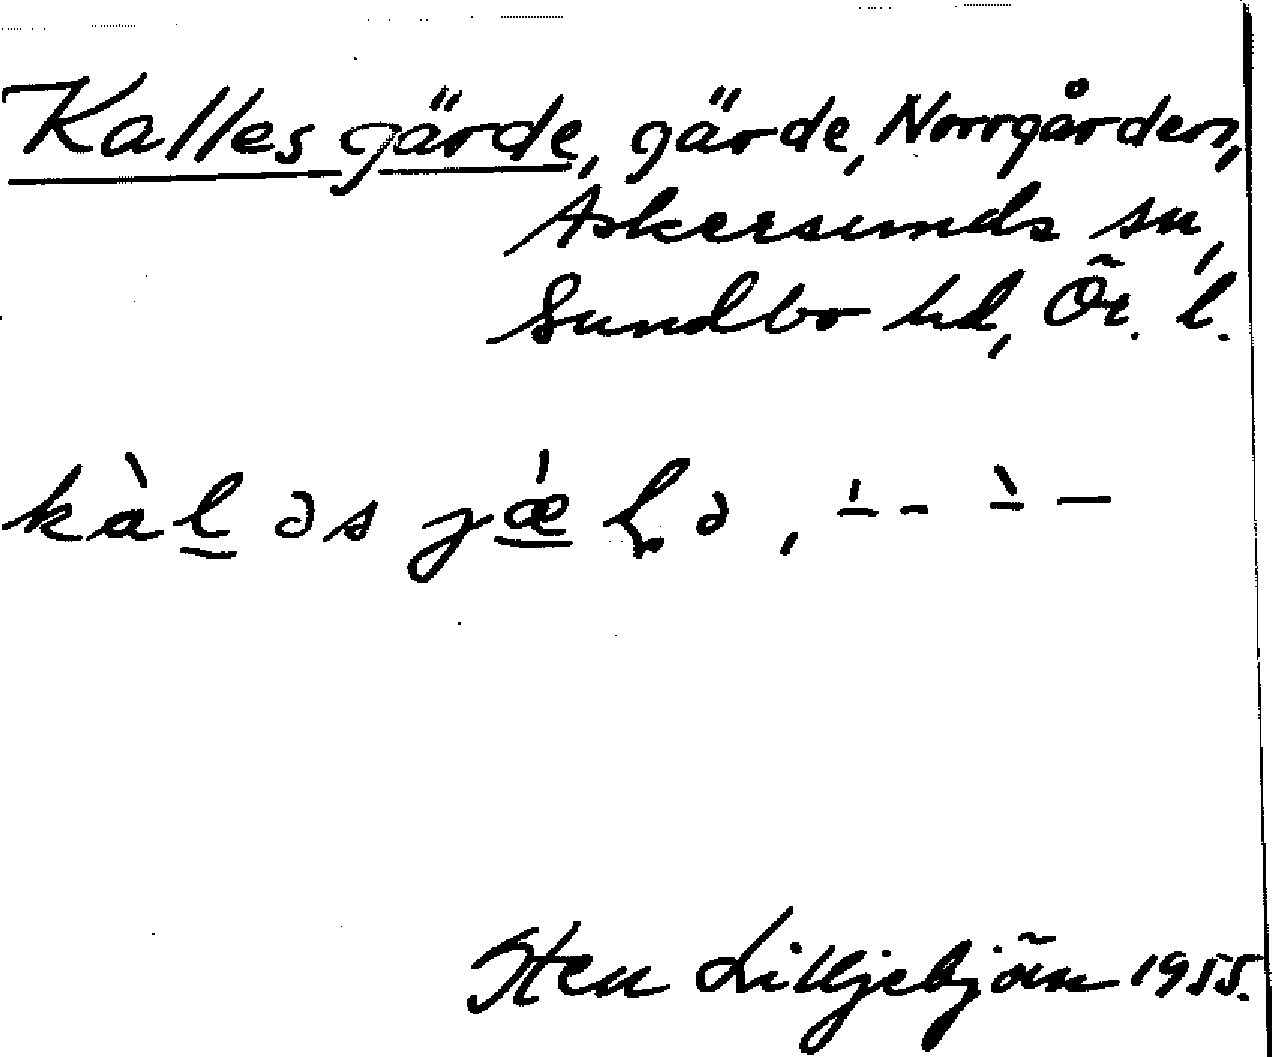 Kalles gärde, gärde, Norrgården,
Askersunds sn,
Sundbo hd, Ör. l.
kàl̲əs jǽ̲ɭə, ∸ - ∸ –
Sten Lilljebjörn 1955.